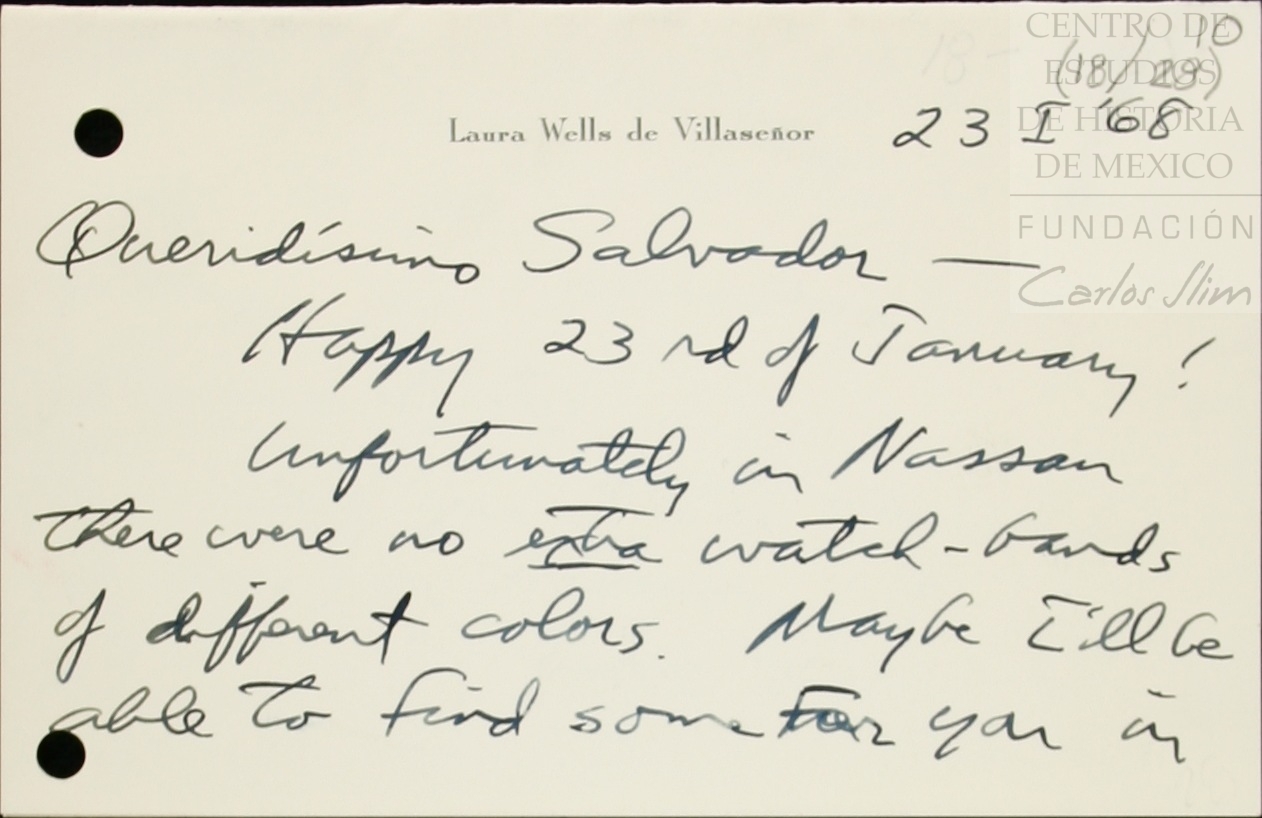 10
CENTRO DE
(18/28)
ESTUDIOS
DE HISTORIA
DE MEXICO
FUNDACIÓN
Carlos Slim
Laura Wells de Villaseñor
23 I '68
Queridísimo Salvador —
Happy 23rd of January!
Unfortunately in Nassau
there were no extra watch-bands
of different colors. Maybe I'll be
able to find some for you in